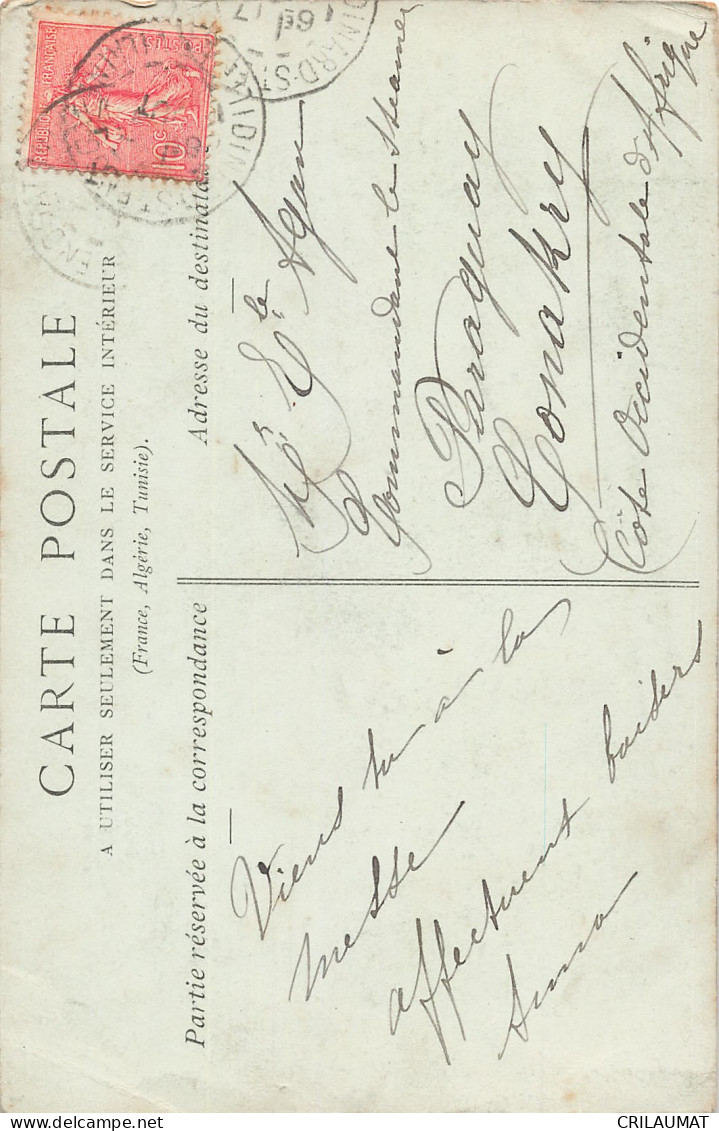 CARTE POSTALE
A UTILISER SEULEMENT DANS LE SERVICE INTÉRIEUR
(France, Algérie, Tunisie).
Partie réservée à la correspondance
Adresse du destinataire
RÉPUBLIQUE FRANÇAISE
POSTES
10 c
DINARD-ST
Viens tu à la
messe
affectueux baisers
Anna
Commandant le Steamer
Paraguay
Conakry
Côte Occidentale d'Afrique
CRILAUMAT